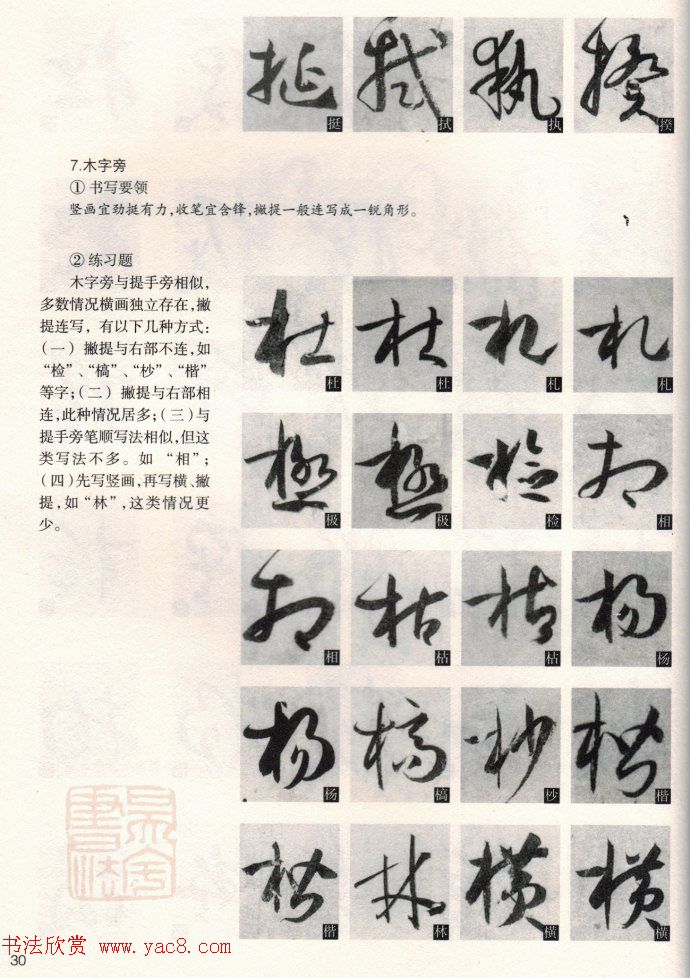 挺 拭 执 揆
7.木字旁
① 书写要领
竖画宜劲挺有力,收笔宜含锋,撇提一般连写成一锐角形。
② 练习题
木字旁与提手旁相似,
多数情况横画独立存在,撇
提连写，有以下几种方式:
(一) 撇提与右部不连,如
“检”、“槁”、“杪”、“楷”
等字;(二) 撇提与右部相
连,此种情况居多;(三)与
提手旁笔顺写法相似,但这
类写法不多。如 “相”;
(四)先写竖画,再写横、撇
提,如“林”,这类情况更
少。
杜 杜 札 札
极 极 检 相
相 枯 枯 杨
杨 槁 杪 楷
楷 林 横 横
书法欣赏 www.yac8.com
30